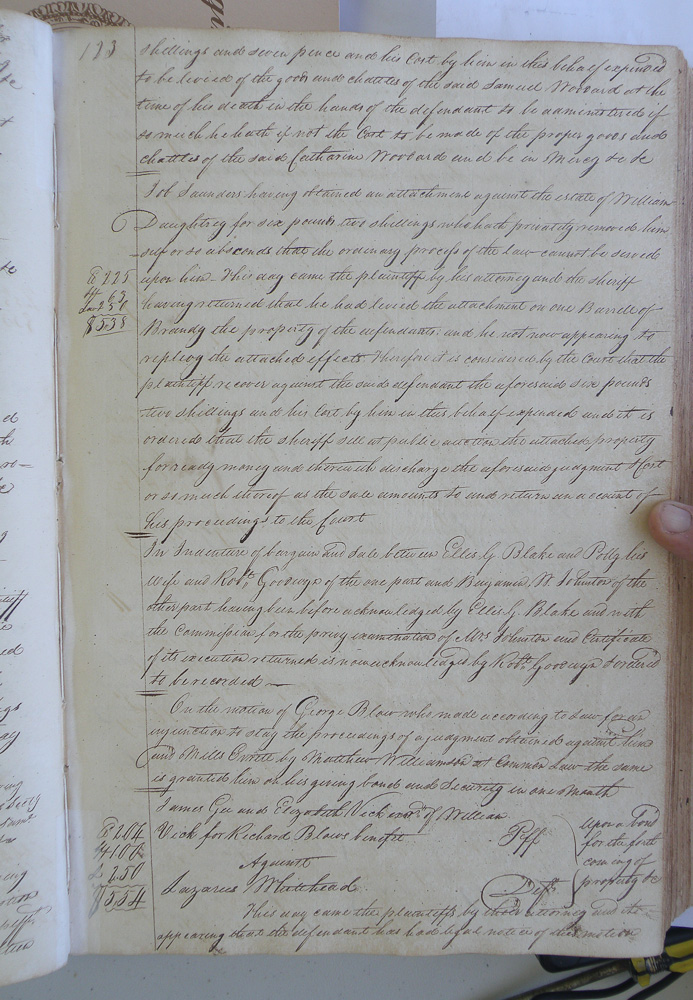 133
shillings and seven pence and his Cost by him in this behalf expended
to be levied of the goods and chattles of the said Samuel Woobard at the
time of his death in the hands of the defendant to be administered if
so much he hath if not the Cost to be made of the proper goods and
chattles of the said Catharine Woobard and be in Mercy &c &c
Job Saunders having obtained an attachment against the estate of William
Daughtrey for six pounds two shillings who hath privately removed him
self or so absconds that the ordinary process of the law cannot be served
upon him - This day came the plaintiff by his attorney and the sheriff
having returned that he had levied the attachment on one Barrell of
Brandy the property of the defendants: and he not now appearing to
replevy the attached effects Therefore it is considered by the Court that the
plaintiff recover against the said defendant the aforesaid six pounds
two shillings and his Cost by him in this behalf expended and it is
ordered that the sheriff sell at public auction the attached property
for ready money and therewith discharge the aforesaid judgment & Cost
or so much thereof as the sale amounts to and return an account of
his proceedings to the Court
An Indenture of bargain and sale between Elles G. Blake and Polly his
Wife and Robt. Goodwyn of the one part and Benjamin W. Johnston of the
other part having been before acknowledged by Elles G. Blake and with
the Commission for the privy examination of Mrs Johnston and Certificate
of its execution returned is now acknowledged by Robt. Goodwyn & ordered
to be recorded —
On the motion of George Blow who made according to Law for an
injunction to stay the proceedings of a judgment obtained against him
and Mills Everitt by Matthew Williamson at Common Law the same
is granted him on his giving bond and Security in one Month
James Gee and Elizabeth Vick of William
Vick for Richard Blows benefit Pff
Against
Lazarus Whitehead Deft
upon a bond
for the forth
coming of
property &c
This day came the plaintiffs by their attorney and it
appearing that the defendant has had legal notice of this motion
225
63
8538
8204
250
$554